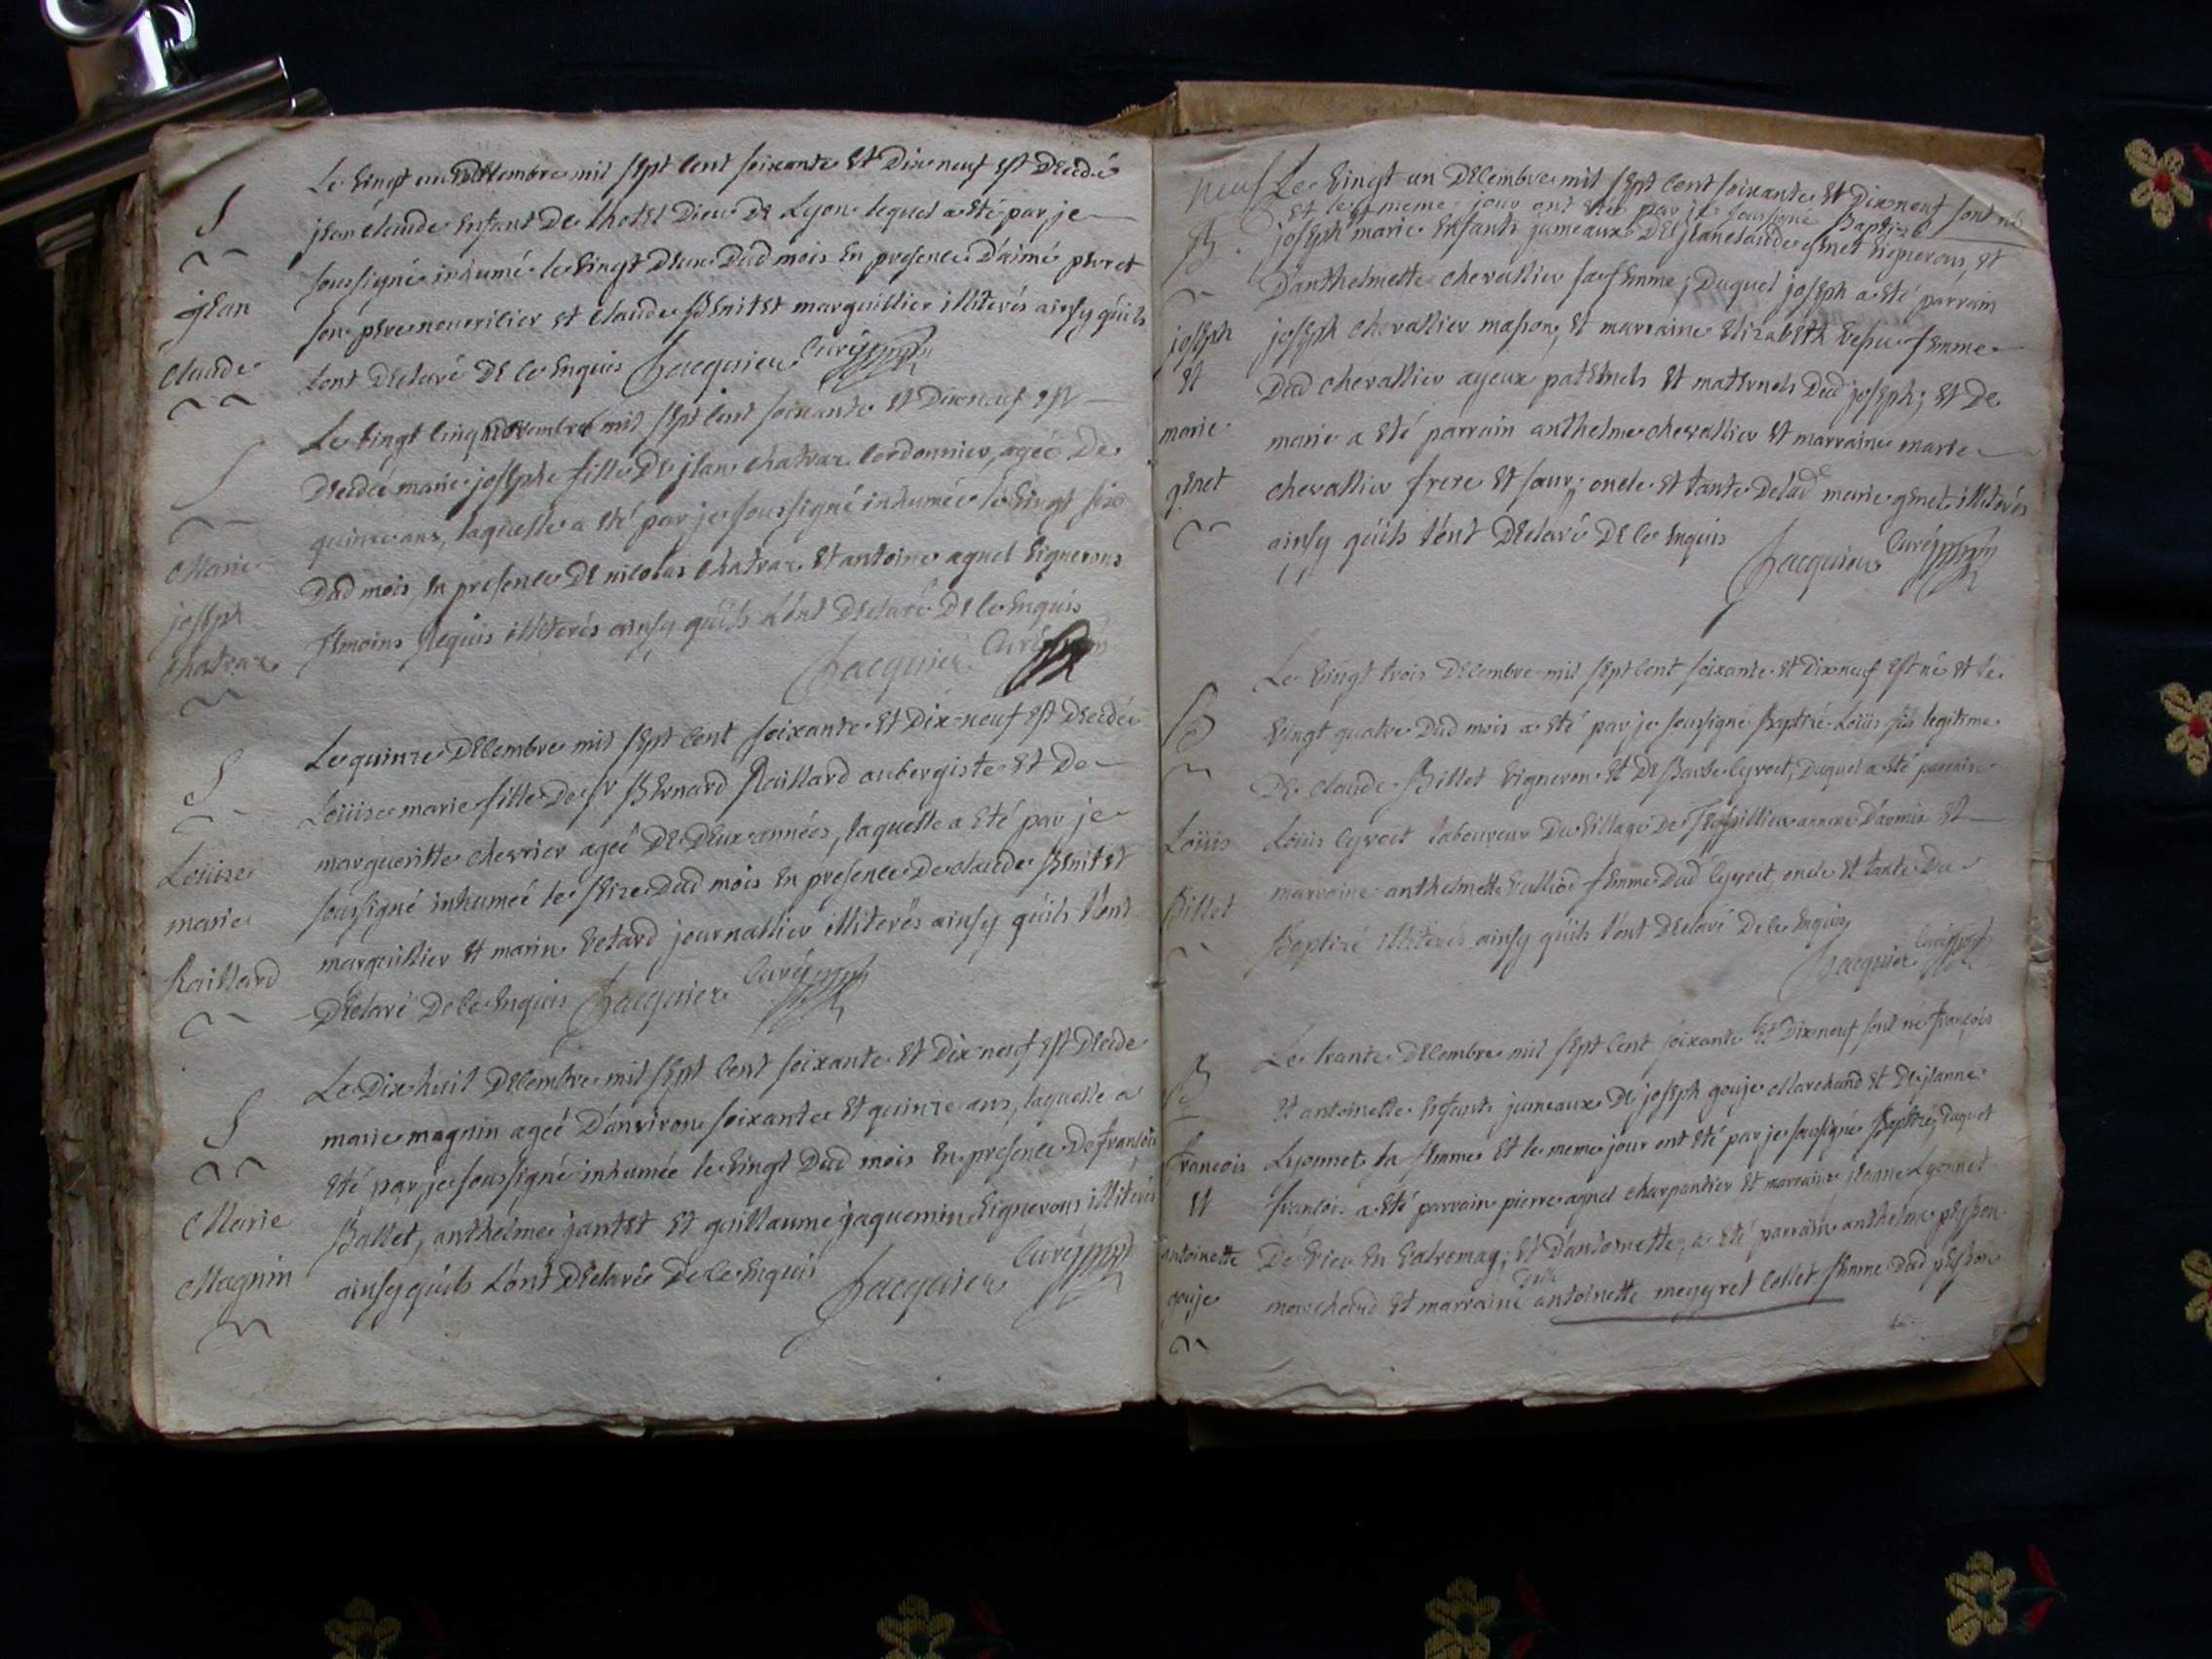 S
jean
Claude
Le vingt un mil sept cent soixante et Dix neuf est Decedé
jean claude enfant De lhotel Dieu De Lyon lequel a eté par je
soussigné inhumé le vingt Deux Dud mois en presence D'aimé
son pere nouricier et claude Benitet marguillier illiterés ainsy qu'ils
l'ont Declaré De ce enquis Jacquier Curé
S
Marie
joseph
chatraz
Le vingt cinq mil sept cent soixante et Dix neuf est
Decedée marie josephe fille De jean chatraz cordonnier, ageé De
quinze ans, laquelle a eté par je soussigné inhumée le vingt six
Dud mois, en presence De nicolas chatraz et antoine agnel vignerons
temoins requis illiterés ainsy qu'ils L'ont Declaré De ce enquis
Jacquier Curé
S
Loüise
marie
Raillard
Le quinze Decembre mil sept cent soixante et Dix-neuf est Decedée
Loüise marie fille De sr Bernard Raillard aubergiste et De
margueritte chevrier ageé De Deux années, laquelle a eté par je
soussigné inhumeé le seize Dud mois en presence De claude Benitet
marguillier et marin vetard journallier illiterés ainsy qu'ils l'ont
Declaré De ce enquis Jacquier Curé
S
Marie
Magnin
Le Dix huit Decembre mil sept cent soixante et Dix neuf est Decedé
marie magnin ageé D'anviron soixante et quinze ans, laquelle a
eté par je soussigné inhumée le vingt Dud mois en presence De françois
Ballet, anthelme jantet et guillaume jaquemin vignerons illiterés
ainsy qu'ils L'ont Declaré De ce enquis Jacquier Curé
neuf
B
joseph
et
marie
genet
Le vingt un Decembre mil sept cent soixante et Dix neuf sont nés
et le meme jour ont eté par je soussigné Baptizés
joseph et marie enfants jumeaux De jean claude genet vigneron, et
D'anthelmette chevallier sa femme; Duquel joseph a eté parrain
joseph chevallier masson, et marraine elizabeth femme
Dud chevallier ayeux paternels et maternels Dud joseph; et De
marie a eté parrain anthelme chevallier et marraine marie
chevallier frere et sœur; oncle et tante De lad marie genet illiterés
ainsy qu'ils l'ont Declaré De ce enquis
Jacquier Curé
B
Loüis
Billet
Le vingt trois Decembre mil sept cent soixante et Dix neuf est né et le
vingt quatre Dud mois a eté par je soussigné Baptizé Loüis fils legitime
De claude Billet vigneron et De Duquel a eté parrain
Loüis laboureur Du village De et
marraine anthelmette femme Dud oncle et tante Du
Baptizé illiterés ainsy qu'ils l'ont Declaré De ce enquis
Jacquier Curé
B
françois
et
antoinette
gouje
Le trante Decembre mil sept cent soixante et Dix neuf sont né françois
et antoinette enfants jumeaux De joseph gouje Marchand et De jeanne
Lyonnet sa femme et le meme jour ont eté par je soussigné Baptizé, Duquel
françois a eté parrain pierre agnel charpantier et marraine jeanne Lyonnet
De en valromay; et D'antoinette, a eté parrain anthelme
marchand et marraine antoinette collet femme Dud